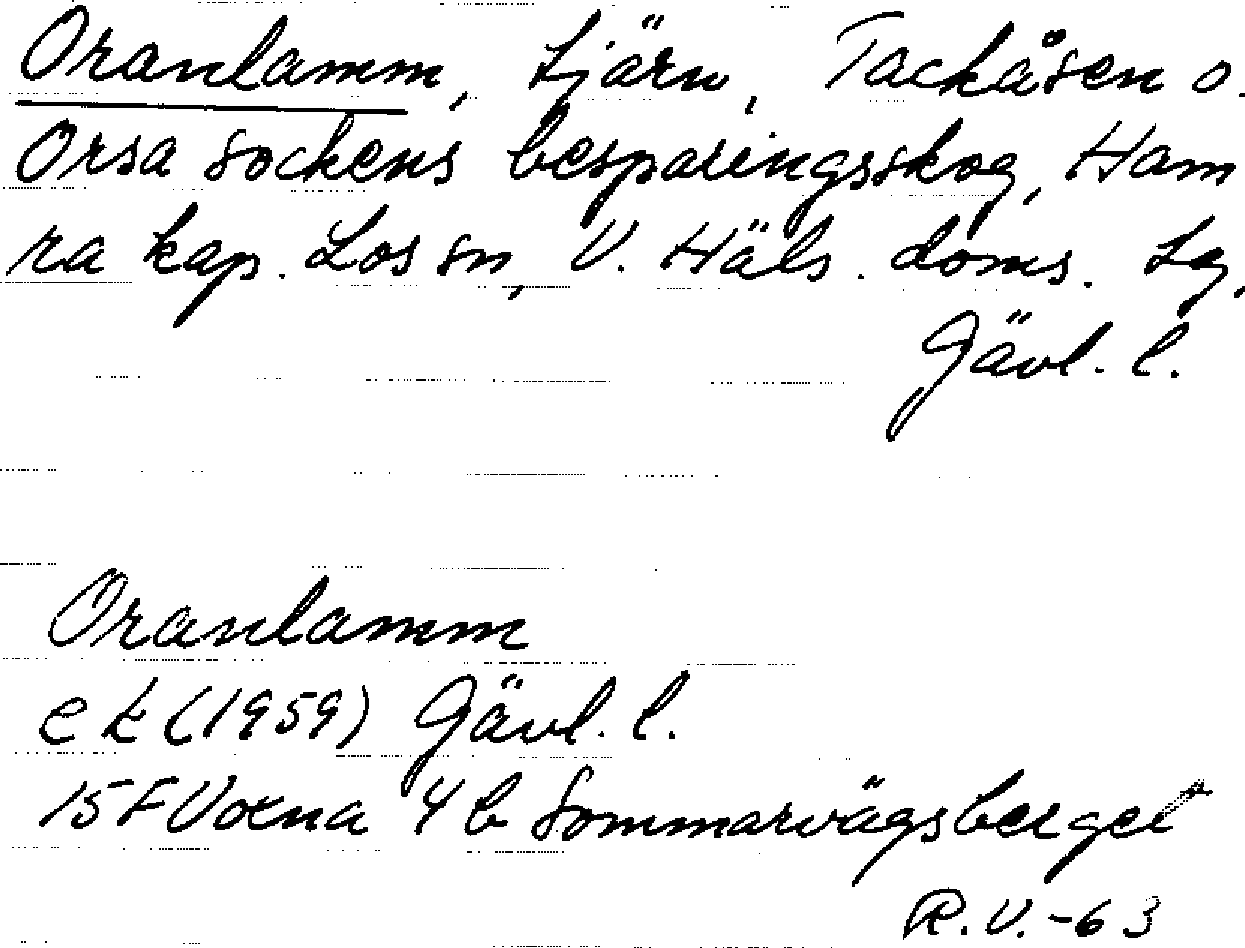 Oranlamm, tjärn, Tackåsen o.
Orsa sockens besparingsskog, Ham
ra kap. Los sn, V. Häls. doms. lg,
Gävl. l.
Oranlamm
e k (1959) Gävl. l.
15F Voxna 4b Sommarvägsberget
R.V.-63